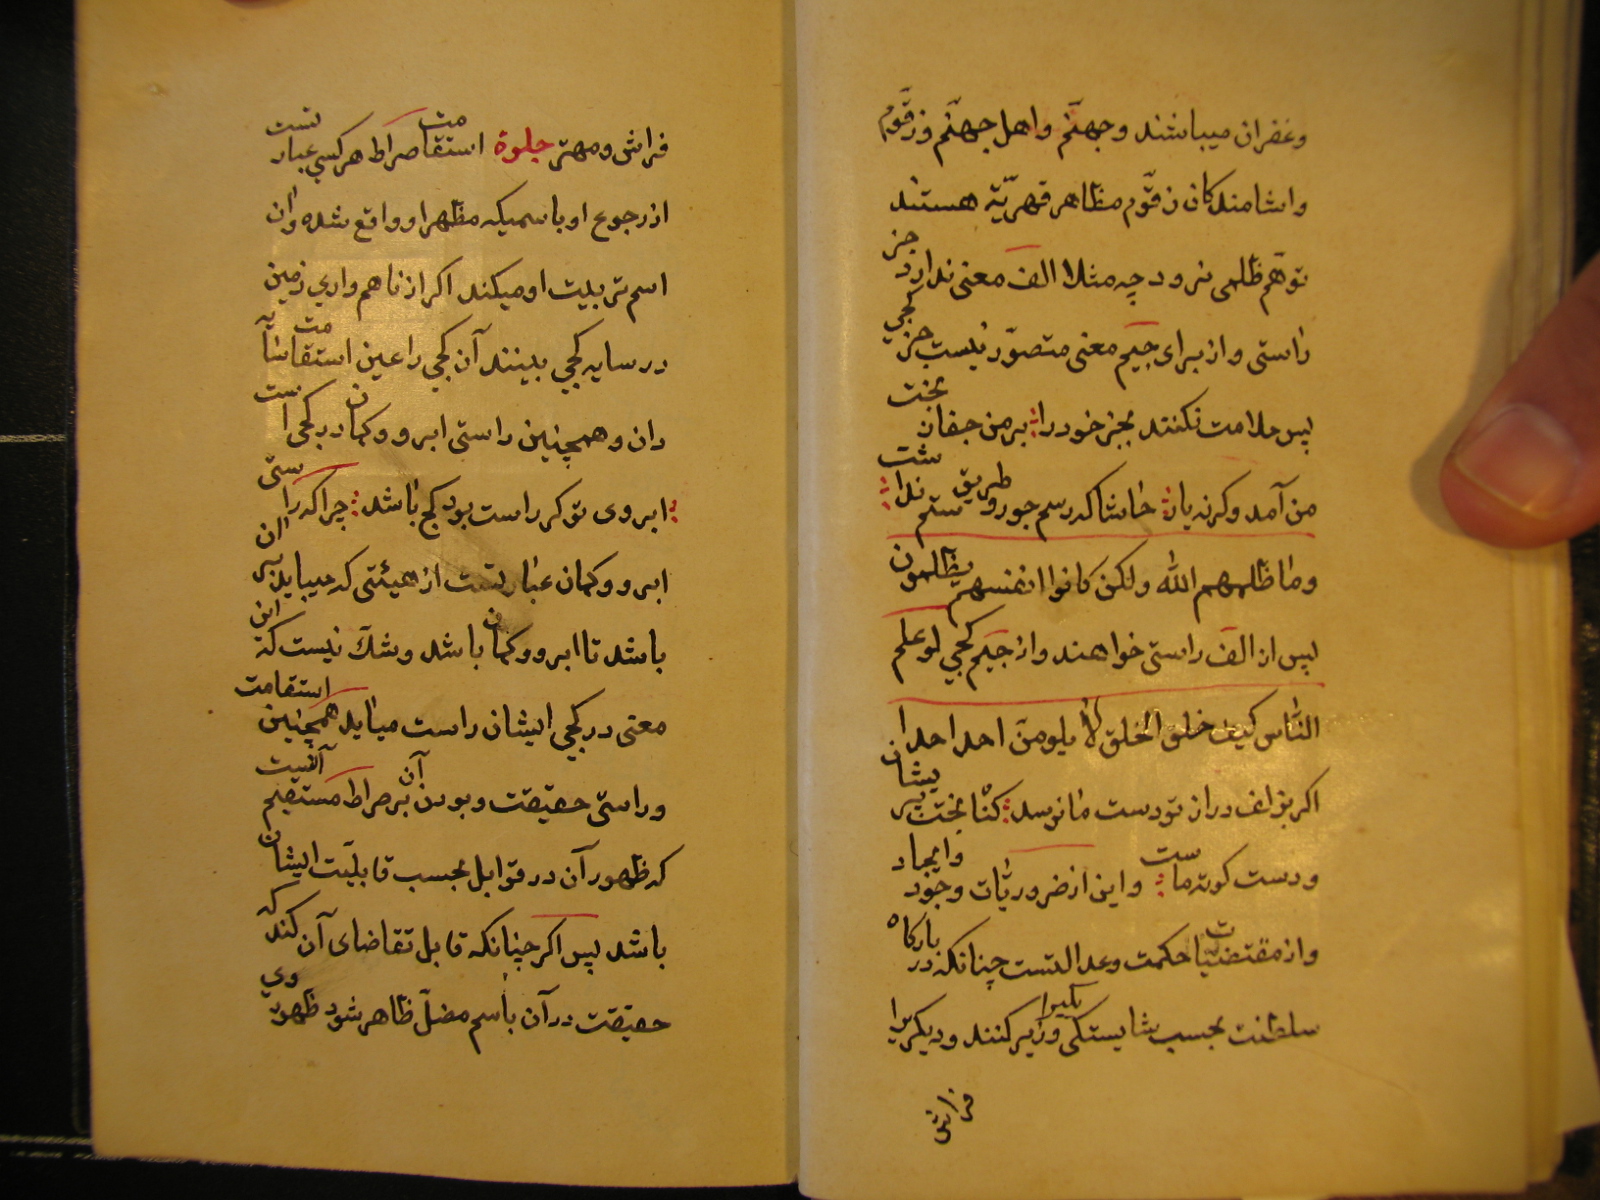 وغفران میباشند وجهنّم واهل جهنّم وزقّوم
واشامندکان زقّوم مظاهر قهریّه هستند
توهّم ظلمی نرود چه مثلا الف معنی ندارد جز
راستی واز برای جیم معنی متصوّر نیست جز کجی
پس ملامت نکنند بجز خود را بر من جفا ز بخت
من آمد وکرنه یار حاشا که رسم جور وطریق ستم نداشت
وما ظلمهم الله ولکن کانوا انفسهم یظلمون
پس از الف راستی خواهند واز جیم کجی لو علم
النّاس کیف خلق الخلق لا یلومنّ احد احدا
اکر بزلف دراز تو دست ما نرسد کناه بخت پریشان
ودست کوته ماست واین از ضروریّات وجود وایجاد
واز مقتضیّات حکمت وعدالتست چنانکه در بارکاه
سلطنت بحسب شایستکی وزیر کنند ودیکریرا
فراش
فراش ومهتر جلوة استقامت صراط هر کسی عبارتست
از رجوع او باسمیکه مظهر او واقع شده وان
اسم تربیت او میکند اکر از ناهمواری زمین
در سایه کجی بینند آن کجی را عین استقامت سایه
دان وهمچنین راستی ابرو وکمان در کجی است
ابروی تو کر راست بود کج باشد چرا که راستی
ابرو وکمان عبارتست از هیئتی که میباید بران
باشد تا ابرو وکمان باشد وشک نیست که این
معنی در کجی ایشان راست میاید همچنین استقامت
وراستی حقیقت وبودن آن بر صراط مستقیم آنست
که ظهور آن در قوابل بحسب قابلیّت ایشان
باشد پس اکر چنانکه قابل تقاضای آن کند که
حقیقت در آن باسم مضلّ ظاهر شود ظهور وی